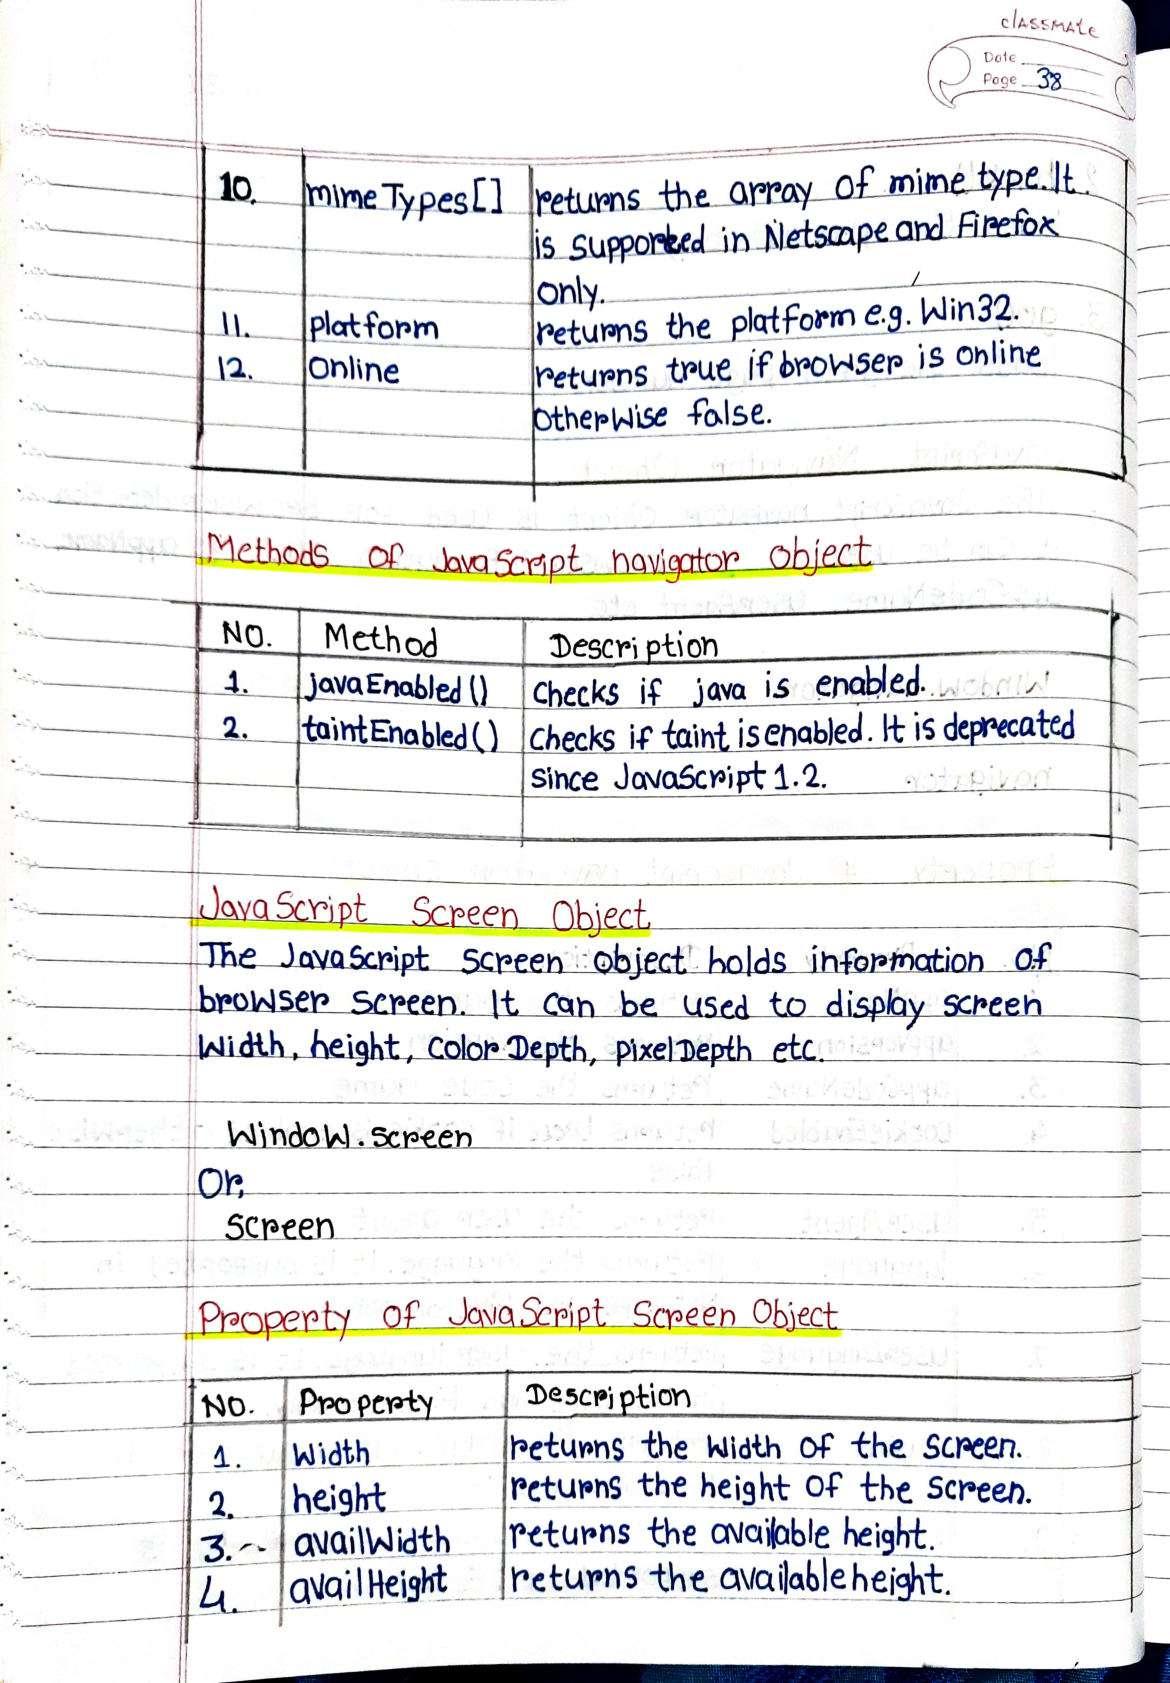 classmate
Date
Page 38
10. mimeTypes[] returns the array of mime type. It
is supported in Netscape and Firefox
only.
11. platform returns the platform e.g. Win32.
12. Online returns true if browser is online
otherwise false.
Methods of JavaScript navigator object
NO. Method Description
1. javaEnabled() checks if java is enabled.
2. taintEnabled() checks if taint is enabled. It is deprecated
since JavaScript 1.2.
JavaScript Screen Object
The JavaScript screen object holds information of
browser screen. It can be used to display screen
width, height, colorDepth, pixelDepth etc.
Window.screen
Or,
Screen
Property of JavaScript Screen Object
NO. Property Description
1. Width returns the width of the screen.
2. height returns the height of the screen.
3. availWidth returns the available height.
4. availHeight returns the available height.